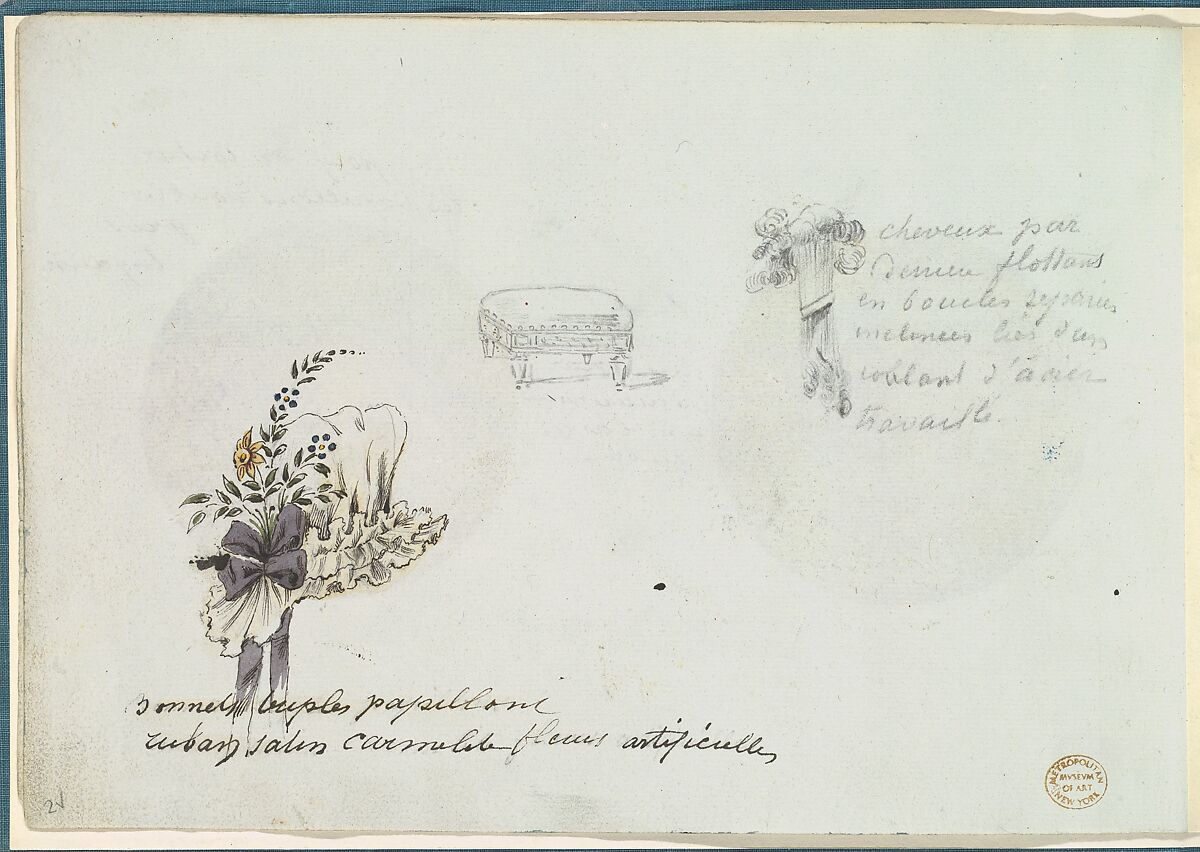 cheveux par
derriere flottans
en boucles separées
lies dans
coulant d'acier
travaillé.
Bonnets papillont
ruban satin carmelite fleurs artificielles
METROPOLITAN
MVSEVM
OF ART
NEW YORK
2v